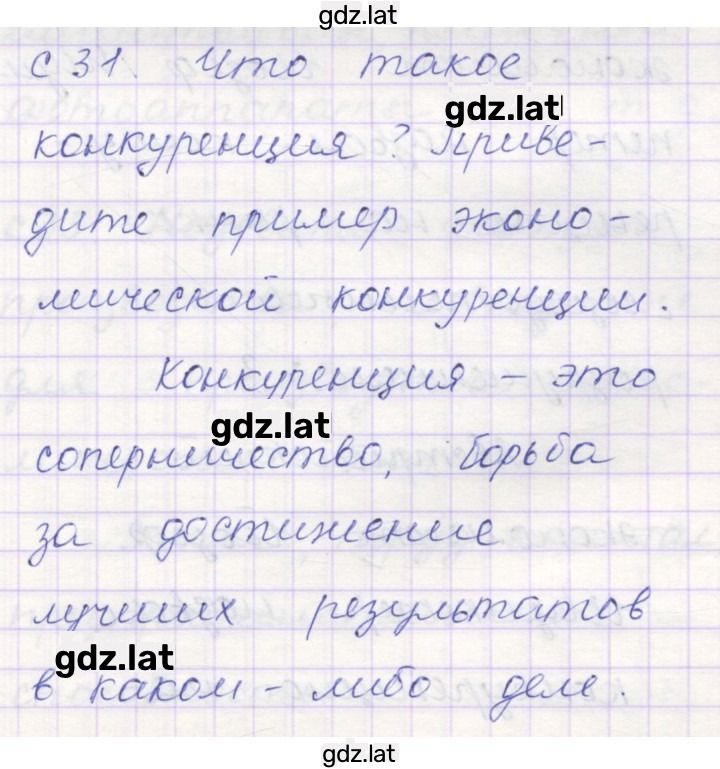 gdz.lat
с 31. Что такое
gdz.lat
конкуренция? Приве-
дите пример эконо-
мической конкуренции.
Конкуренция - это
gdz.lat
соперничество, борьба
за достижение
лучших результатов
gdz.lat
в каком-либо деле.
gdz.lat